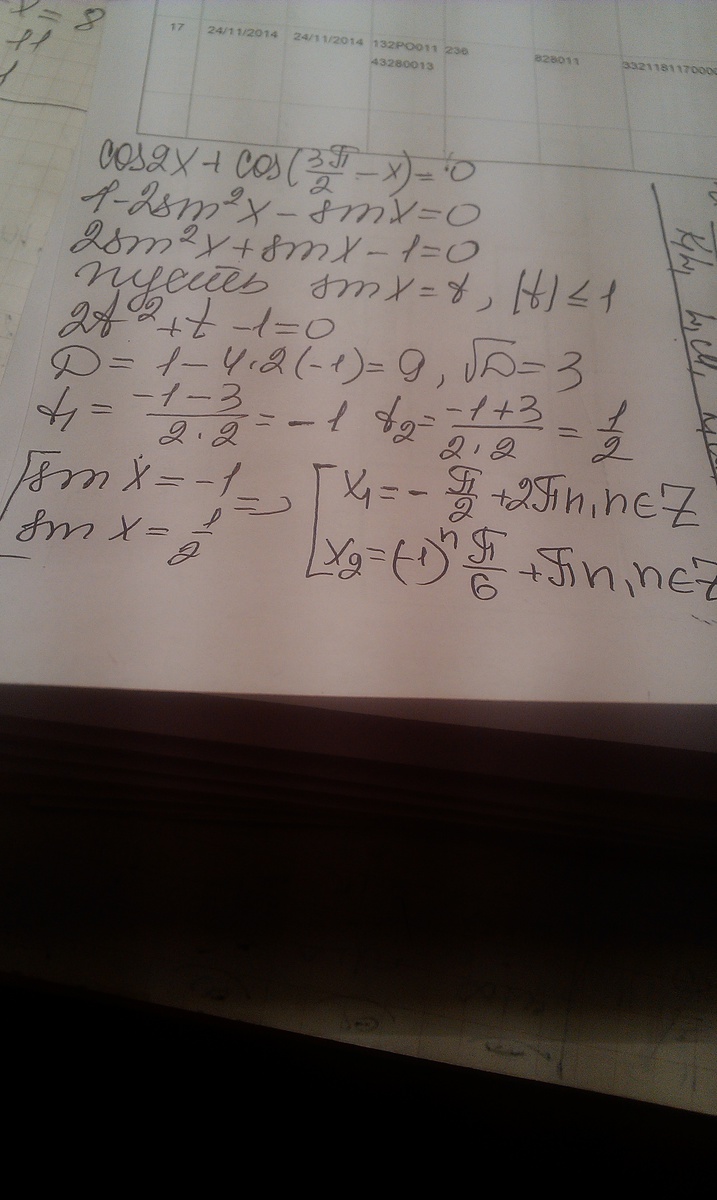 x = 8
11
17 24/11/2014 24/11/2014 132PO011 236 828011
43280013 3321181170000
cos2x + cos(3π/2 − x) = 0
1 − 2sin²x − sinx = 0
2sin²x + sinx − 1 = 0
пусть sinx = t, |t| ≤ 1
2t² + t − 1 = 0
D = 1 − 4·2(−1) = 9, √D = 3
t₁ = (−1−3)/(2·2) = −1 t₂ = (−1+3)/(2·2) = 1/2
[ sin x = −1 => [ x₁ = −π/2 + 2πn, n∈Z
sin x = 1/2 x₂ = (−1)ⁿ π/6 + πn, n∈Z